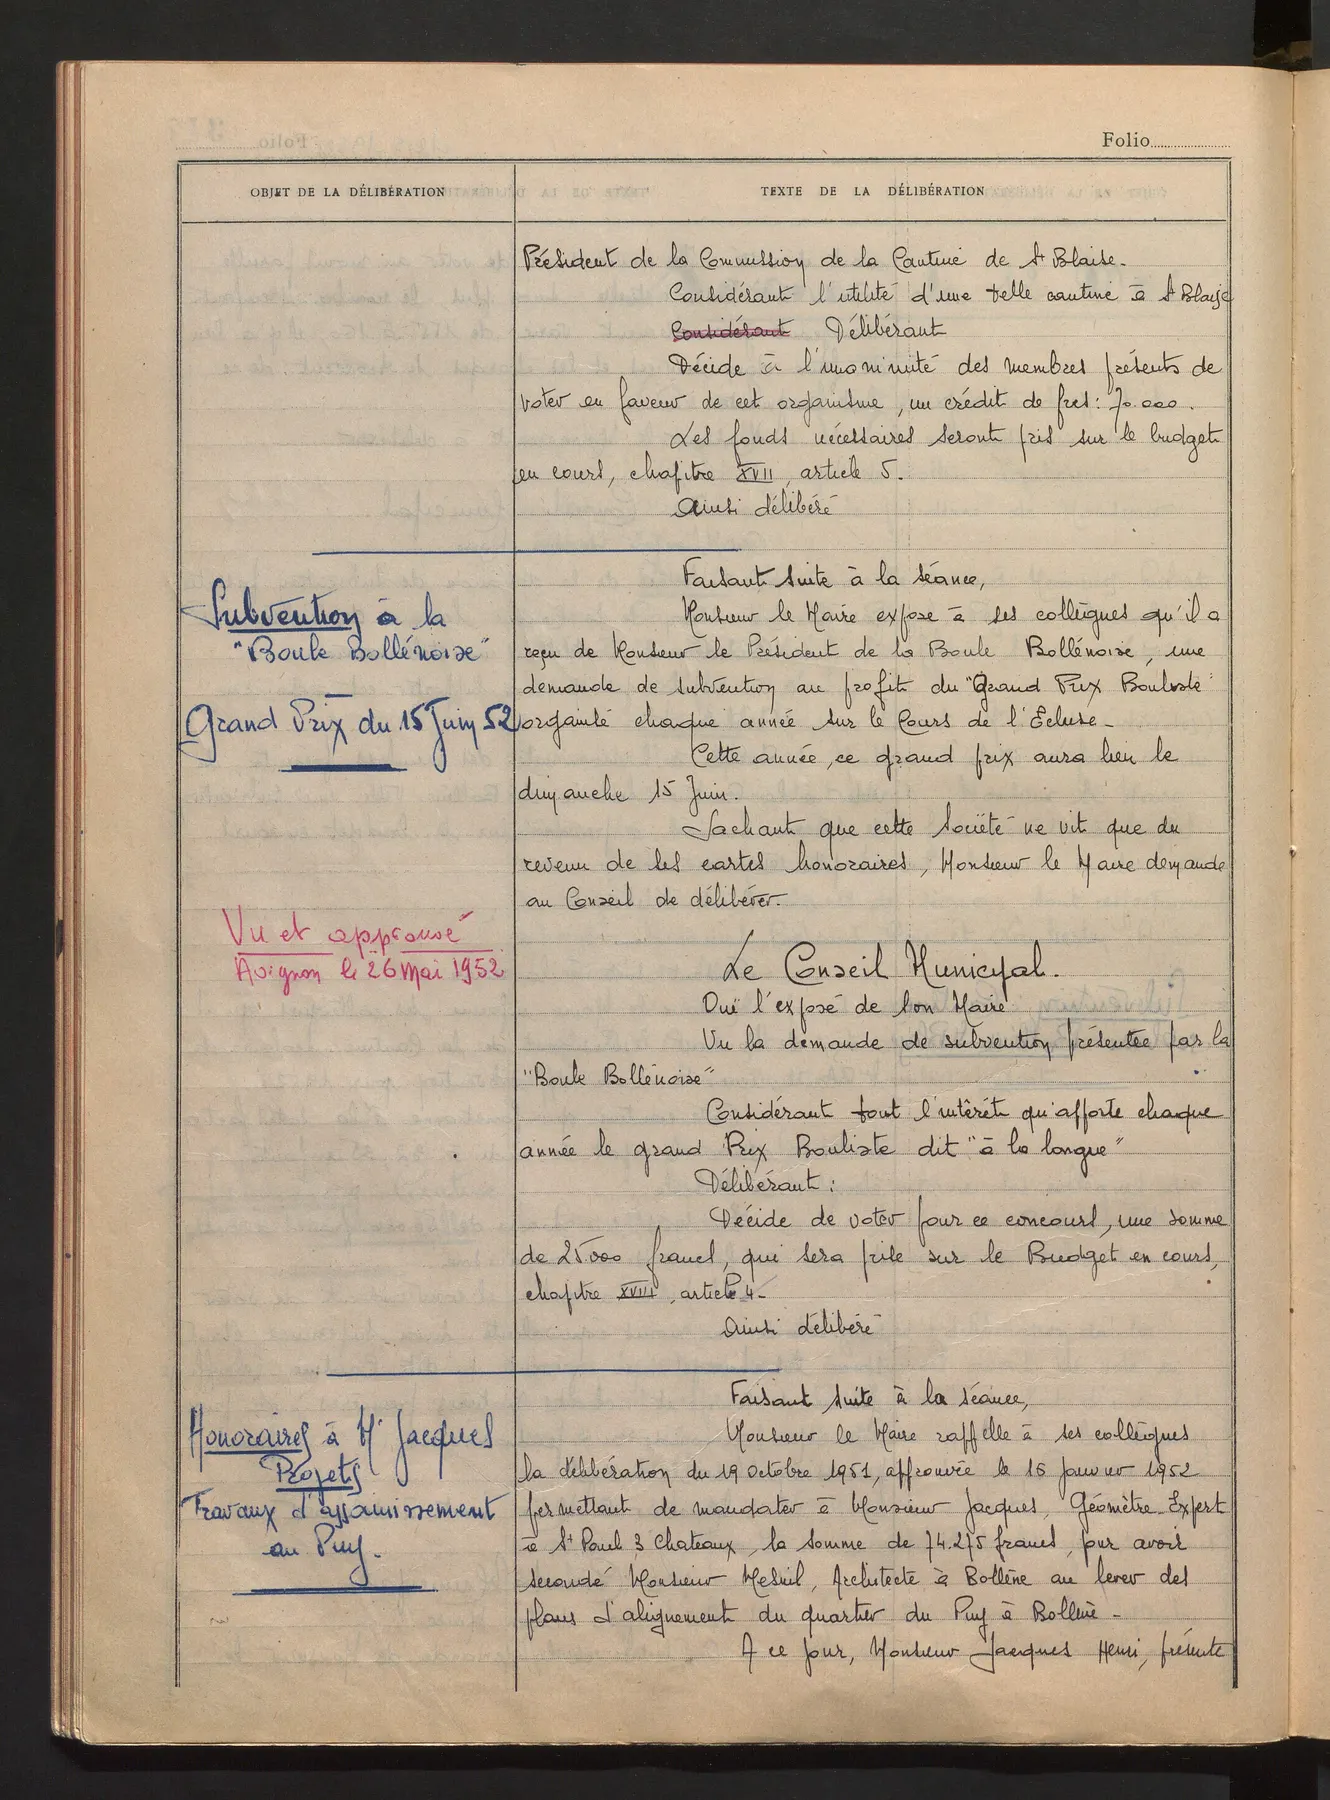 Folio
OBJET DE LA DÉLIBÉRATION
TEXTE DE LA DÉLIBÉRATION
Président de la Commission de la Cantine de St Blaise.
Considérant l'utilité d'une telle cantine à St Blaise
Considérant Délibérant
Décide à l'unanimité des membres présents de
voter en faveur de cet organisme, un crédit de frcs: 70.000.
Les fonds nécessaires seront pris sur le budget
en cours, chapitre XVII, article 5.
Ainsi délibéré
Subvention à la
"Boule Bollénoise"
Grand Prix du 15 Juin 52
Vu et approuvé
Avignon le 26 Mai 1952
Faisant suite à la séance,
Monsieur le Maire expose à ses collègues qu'il a
reçu de Monsieur le Président de la Boule Bollénoise, une
demande de subvention au profit du "Grand Prix Bouliste"
organisé chaque année sur le Cours de l'Ecluse.
Cette année, ce grand prix aura lieu le
dimanche 15 Juin.
Sachant que cette Société ne vit que du
revenu de ses cartes honoraires, Monsieur le Maire demande
au Conseil de délibérer.
Le Conseil Municipal.
Ouï l'exposé de son Maire
Vu la demande de subvention présentée par la
"Boule Bollénoise"
Considérant tout l'intérêt qu'apporte chaque
année le grand Prix Bouliste dit "à la longue"
Délibérant :
Décide de voter pour ce concours, une somme
de 25000 francs, qui sera prise sur le Budget en cours,
chapitre XVIII, article 4.
Ainsi délibéré
Honoraires à Mr Jacques
Projets
Travaux d'assainissement
au Puy.
Faisant suite à la séance,
Monsieur le Maire rappelle à ses collègues
la délibération du 19 Octobre 1951, approuvée le 16 Janvier 1952
permettant de mandater à Monsieur Jacques, Géomètre-Expert
à St Paul 3 Chateaux, la somme de 74.275 francs, pour avoir
secondé Monsieur Mesnil, Architecte à Bollène au lever des
plans d'alignement du quartier du Puy à Bollène -
A ce jour, Monsieur Jacques Henri, présente